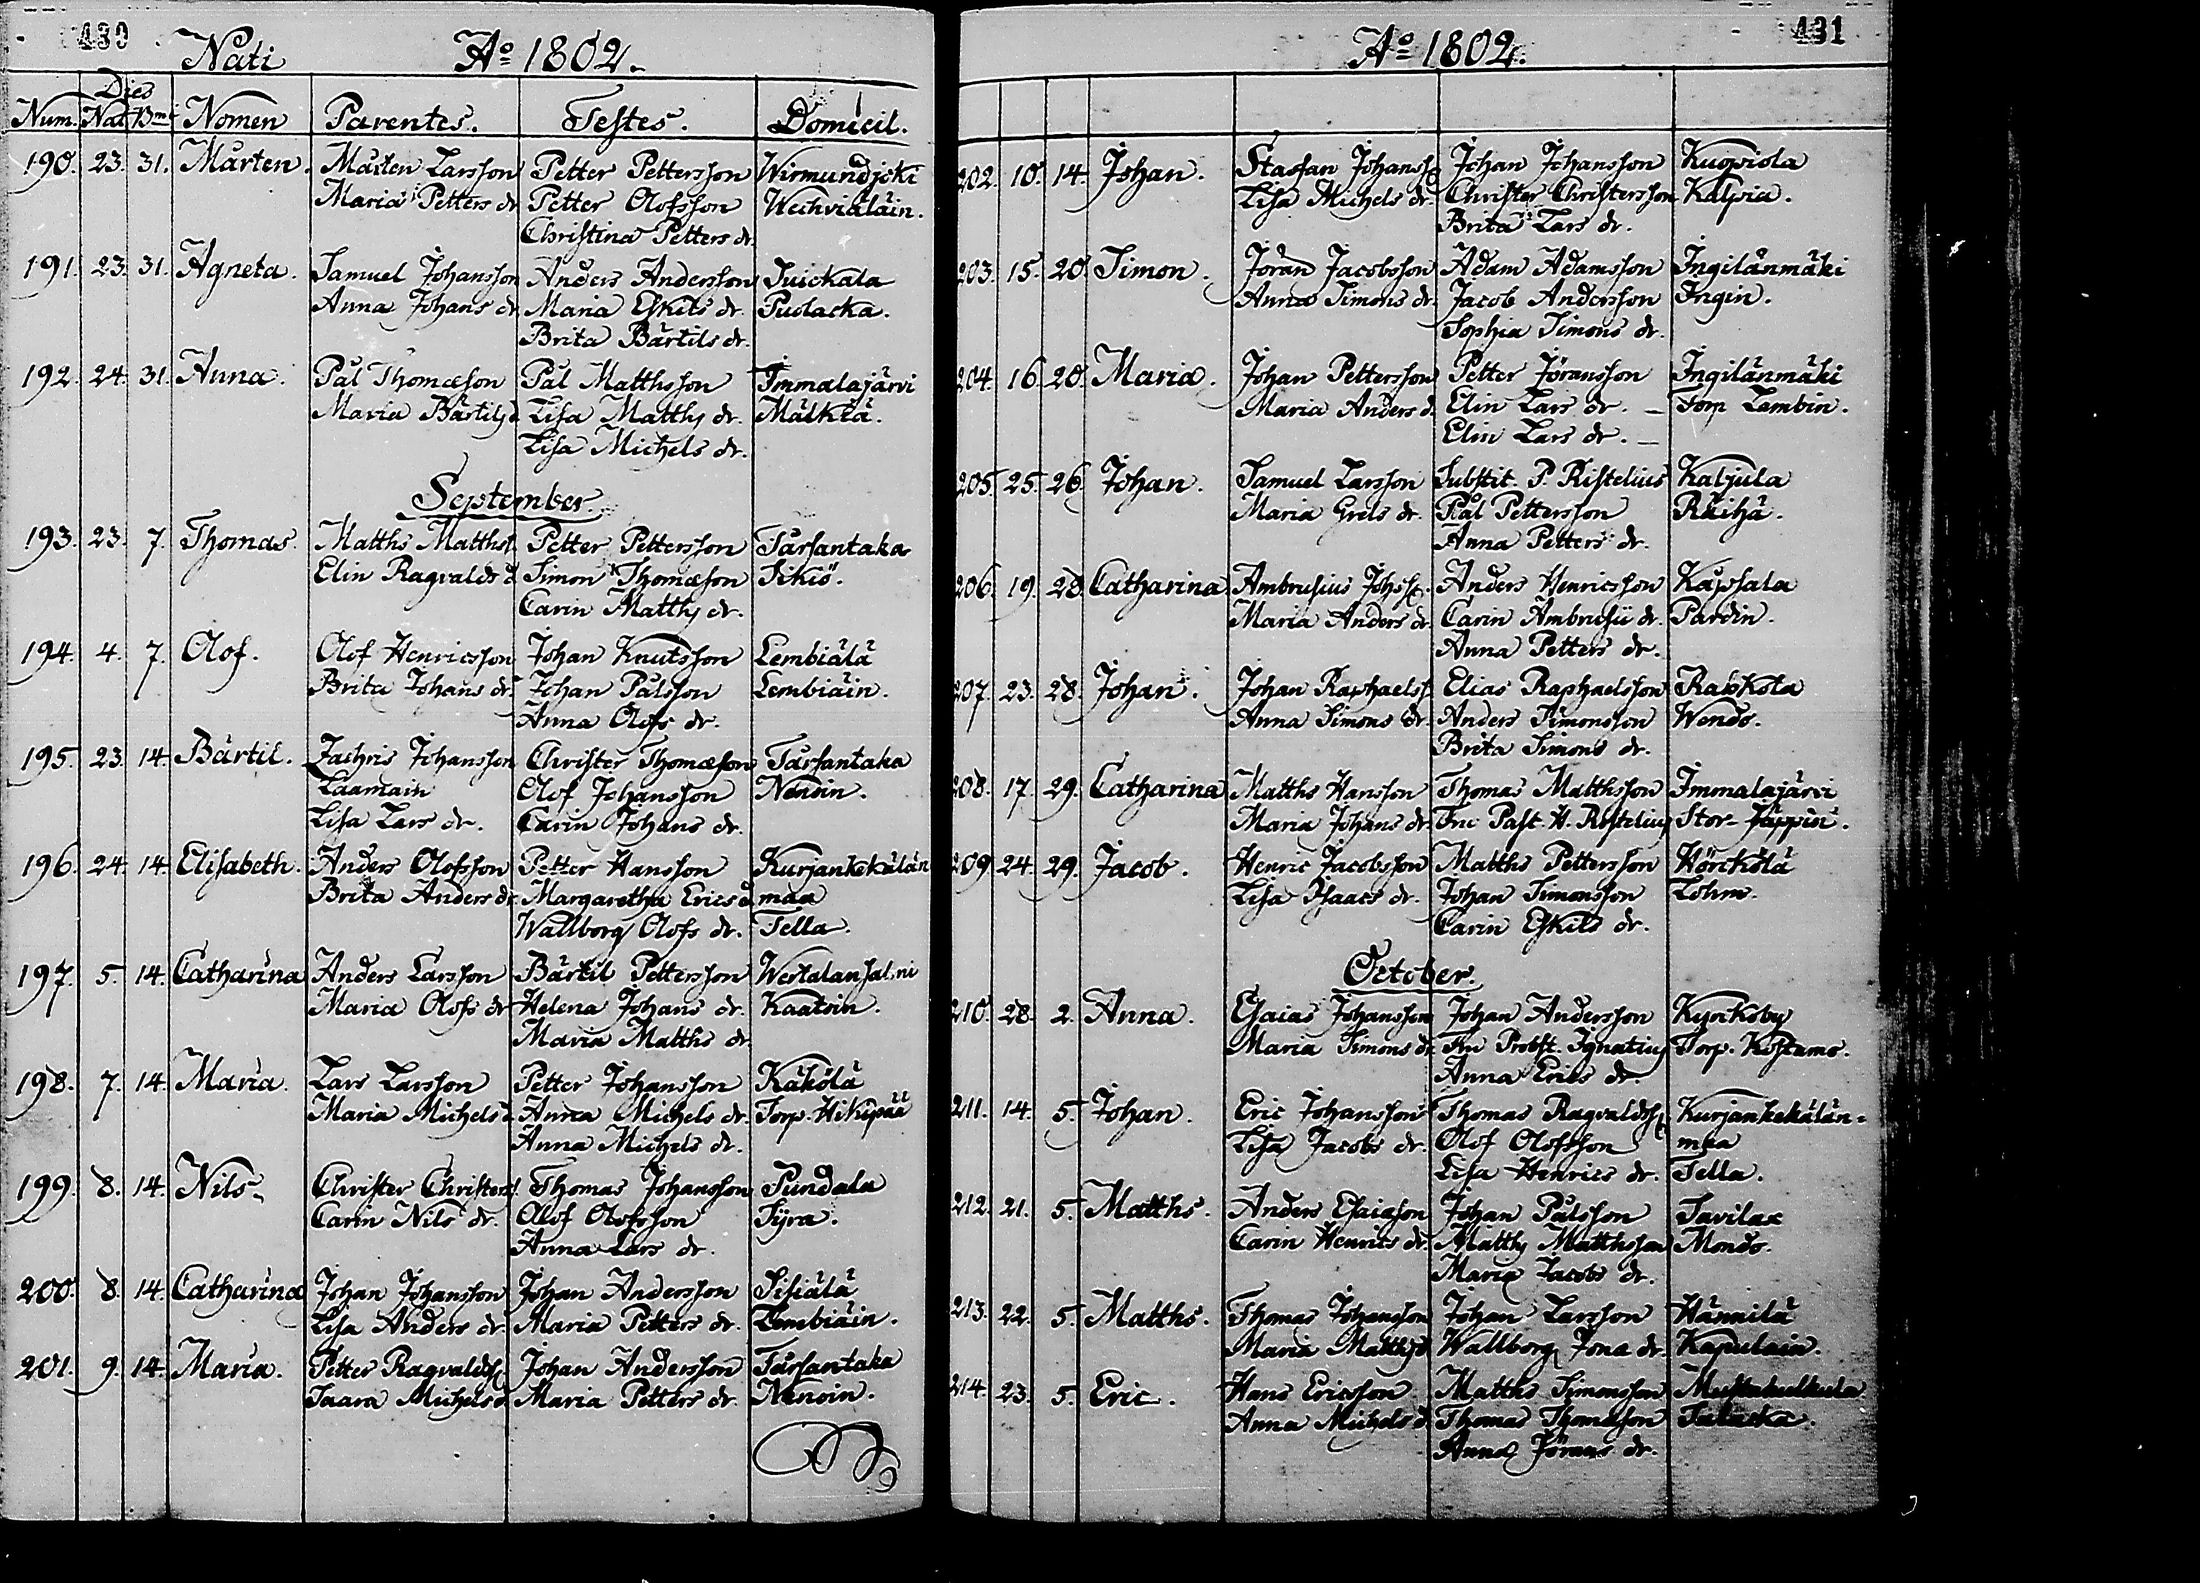 430
Nati Aº 1802.
Dies
Num. Nat. Bm. Nomen Parentes. Testes. Domicil.
190. 23. 31. Mårten. Mårten Larsson Petter Pettersson Wirmundjoki
Maria Petters dr Petter Olofsson Wechviäläin.
Christina Petters dr.
191. 23. 31. Agneta. Samuel Johansson Anders Andersson Suickala
Anna Johans dr Maria Eskils dr. Pulacka.
Brita Bärtils dr.
192. 24. 31. Anna. Pål Thomæson Pål Matthsson Immalajärvi
Maria Bärtils d Lisa Matths dr. Mälkiä.
Lisa Michels dr.
September.
193. 23. 7. Thomas. Matths Matthss. Petter Pettersson Tarsantaka
Elin Ragvalds d Simon Thomæson Sikiö.
Carin Matths dr.
194. 4. 7. Olof. Olof Henricsson Johan Knutsson Lembiälä
Brita Johans dr. Johan Pålsson Lembiäin.
Anna Olofs dr.
195. 23. 14. Bärtil. Zachris Johansson Christer Thomæson Tarsantaka
Laamain Olof Johansson Nenoin.
Lisa Lars dr. Carin Johans dr.
196. 24. 14. Elisabeth. Anders Olofsson Petter Hansson Kurjankekälän
Brita Anders dr. Margaretha Erics d. maa
Wallborg Olofs dr. Tella.
197. 5. 14. Catharina Anders Larsson Bärtil Pettersson Wertalansalmi
Maria Olofs dr Helena Johans dr. Kaatoin.
Maria Matths dr.
198. 7. 14. Maria. Lars Larsson Petter Johansson Käkölä
Maria Michels d. Anna Michels dr. Torp. Hikipää
Anna Michels dr.
199. 8. 14. Nils. Christer Christerss. Thomas Johansson Pundala
Carin Nils dr. Olof Olofsson Tyra.
Anna Lars dr.
200. 8. 14. Catharina Johan Johansson Johan Andersson Sisiälä
Lisa Anders dr. Maria Petters dr. Lembiäin.
201. 9. 14. Maria. Petter Ragvaldss. Johan Andersson Tarsantaka
Saara Michels d. Maria Petters dr. Nenoin.
431
Aº 1802.
202. 10. 14. Johan. Staffan Johanss. Johan Johansson Kuopiola
Lisa Michels dr. Christer Christersson Kalpia.
Brita Lars dr.
203. 15. 20. Simon. Jöran Jacobsson Adam Adamsson Ingilänmäki
Anna Simons dr. Jacob Andersson Ingin.
Sophia Simons dr.
204. 16. 20. Maria. Johan Pettersson Petter Jöransson Ingilänmäki
Maria Anders d. Elin Lars dr. — Torp Lambin.
Elin Lars dr. —
205. 25. 26. Johan. Samuel Larsson Substit. P. Ristelius Kaljula
Maria Grels dr. Pål Pettersson Räihä.
Anna Petters dr.
206. 19. 28. Catharina Ambrusius Johss. Anders Henricsson Käpsala
Maria Anders dr. Carin Ambrusii dr. Pardin.
Anna Petters dr.
207. 23. 28. Johan. Johan Raphaelss. Elias Raphaelsson Raukola
Anna Simons dr. Anders Simonsson Wendo.
Brita Simons dr.
208. 17. 29. Catharina Matths Hansson Thomas Matthsson Immalajärvi
Maria Johans dr. Fru Past. H. Ristelius Stor-Jäppin.
209. 24. 29. Jacob. Henric Jacobsson Matths Pettersson Hörckölä
Lisa Isaacs dr. Johan Simonsson Lohmo.
Carin Eskils dr.
October.
210. 28. 2. Anna. Esaias Johansson Johan Andersson Kyrkoby
Maria Simons dr. Fru Probst. Ignatius Torp. Kostamo.
Anna Erics dr.
211. 14. 5. Johan. Eric Johansson Thomas Ragvaldss. Kurjankekälän=
Lisa Jacobs dr. Olof Olofsson maa
Lisa Henrics dr. Tella.
212. 21. 5. Matths. Anders Esaiæson Johan Pålsson Savilax
Carin Henrics dr. Matths Matthsson Mondo.
Maria Jacobs dr.
213. 22. 5. Matths. Thomas Johansson Johan Larsson Hännilä
Maria Matths d Wallborg Jona dr. Kapulain.
214. 23. 5. Eric. Hans Ericsson Matths Simonsson Mustakulkula
Anna Michels d. Thomas Thomæson Talacka.
Anna Jörans dr.